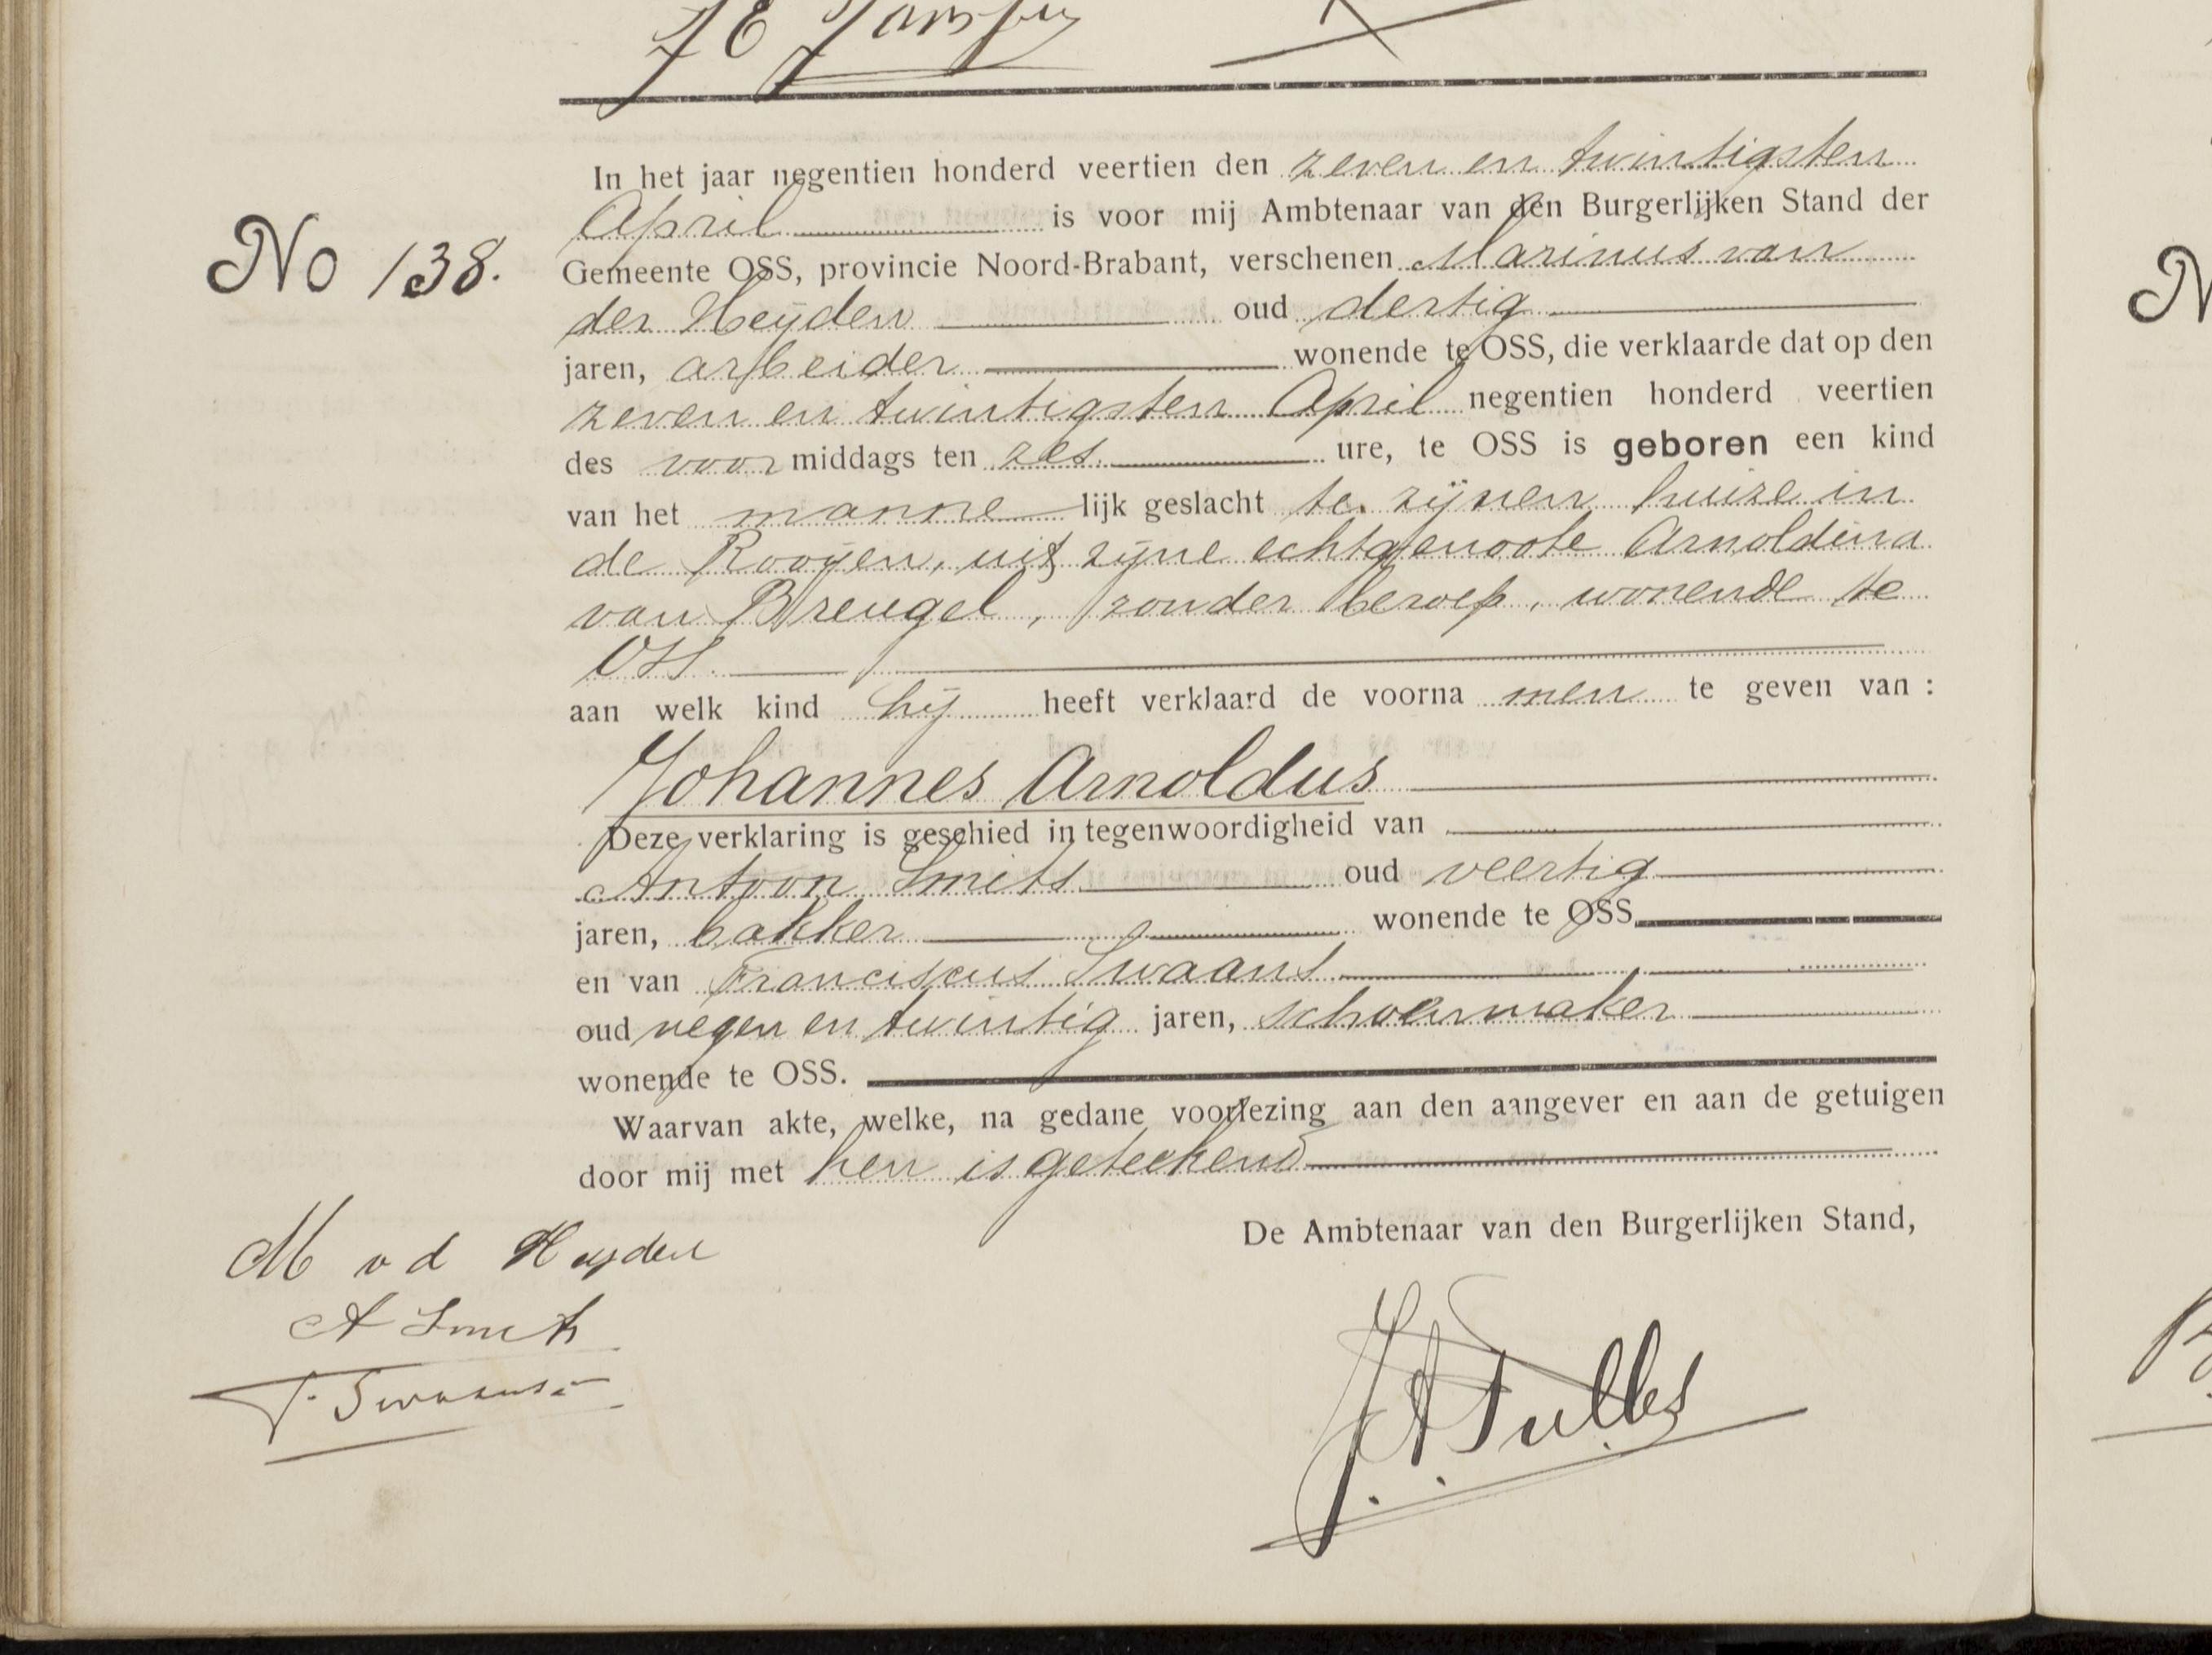 J E Jansen
In het jaar negentien honderd veertien den zeven en twintigsten
April is voor mij Ambtenaar van den Burgerlijken Stand der
No 138.
Gemeente OSS, provincie Noord-Brabant, verschenen Marinus van
der Heijden oud dertig
jaren, arbeider wonende te OSS, die verklaarde dat op den
zeven en twintigsten April negentien honderd veertien
des voor middags ten zes ure, te OSS is geboren een kind
van het manne lijk geslacht te zijnen huize in
de Rooijen, uit zijne echtgenoote Arnoldina
van Breugel, zonder beroep, wonende te
Oss.
aan welk kind hij heeft verklaard de voorna men te geven van :
Johannes Arnoldus
Deze verklaring is geschied in tegenwoordigheid van
Antoon Smits oud veertig
jaren, bakker wonende te OSS
en van Franciscus Swaans
oud negen en twintig jaren, schoenmaker
wonende te OSS.
Waarvan akte, welke, na gedane voorlezing aan den aangever en aan de getuigen
door mij met hen is geteekend
De Ambtenaar van den Burgerlijken Stand,
M v d Heyden
A Smits
F. Swaans